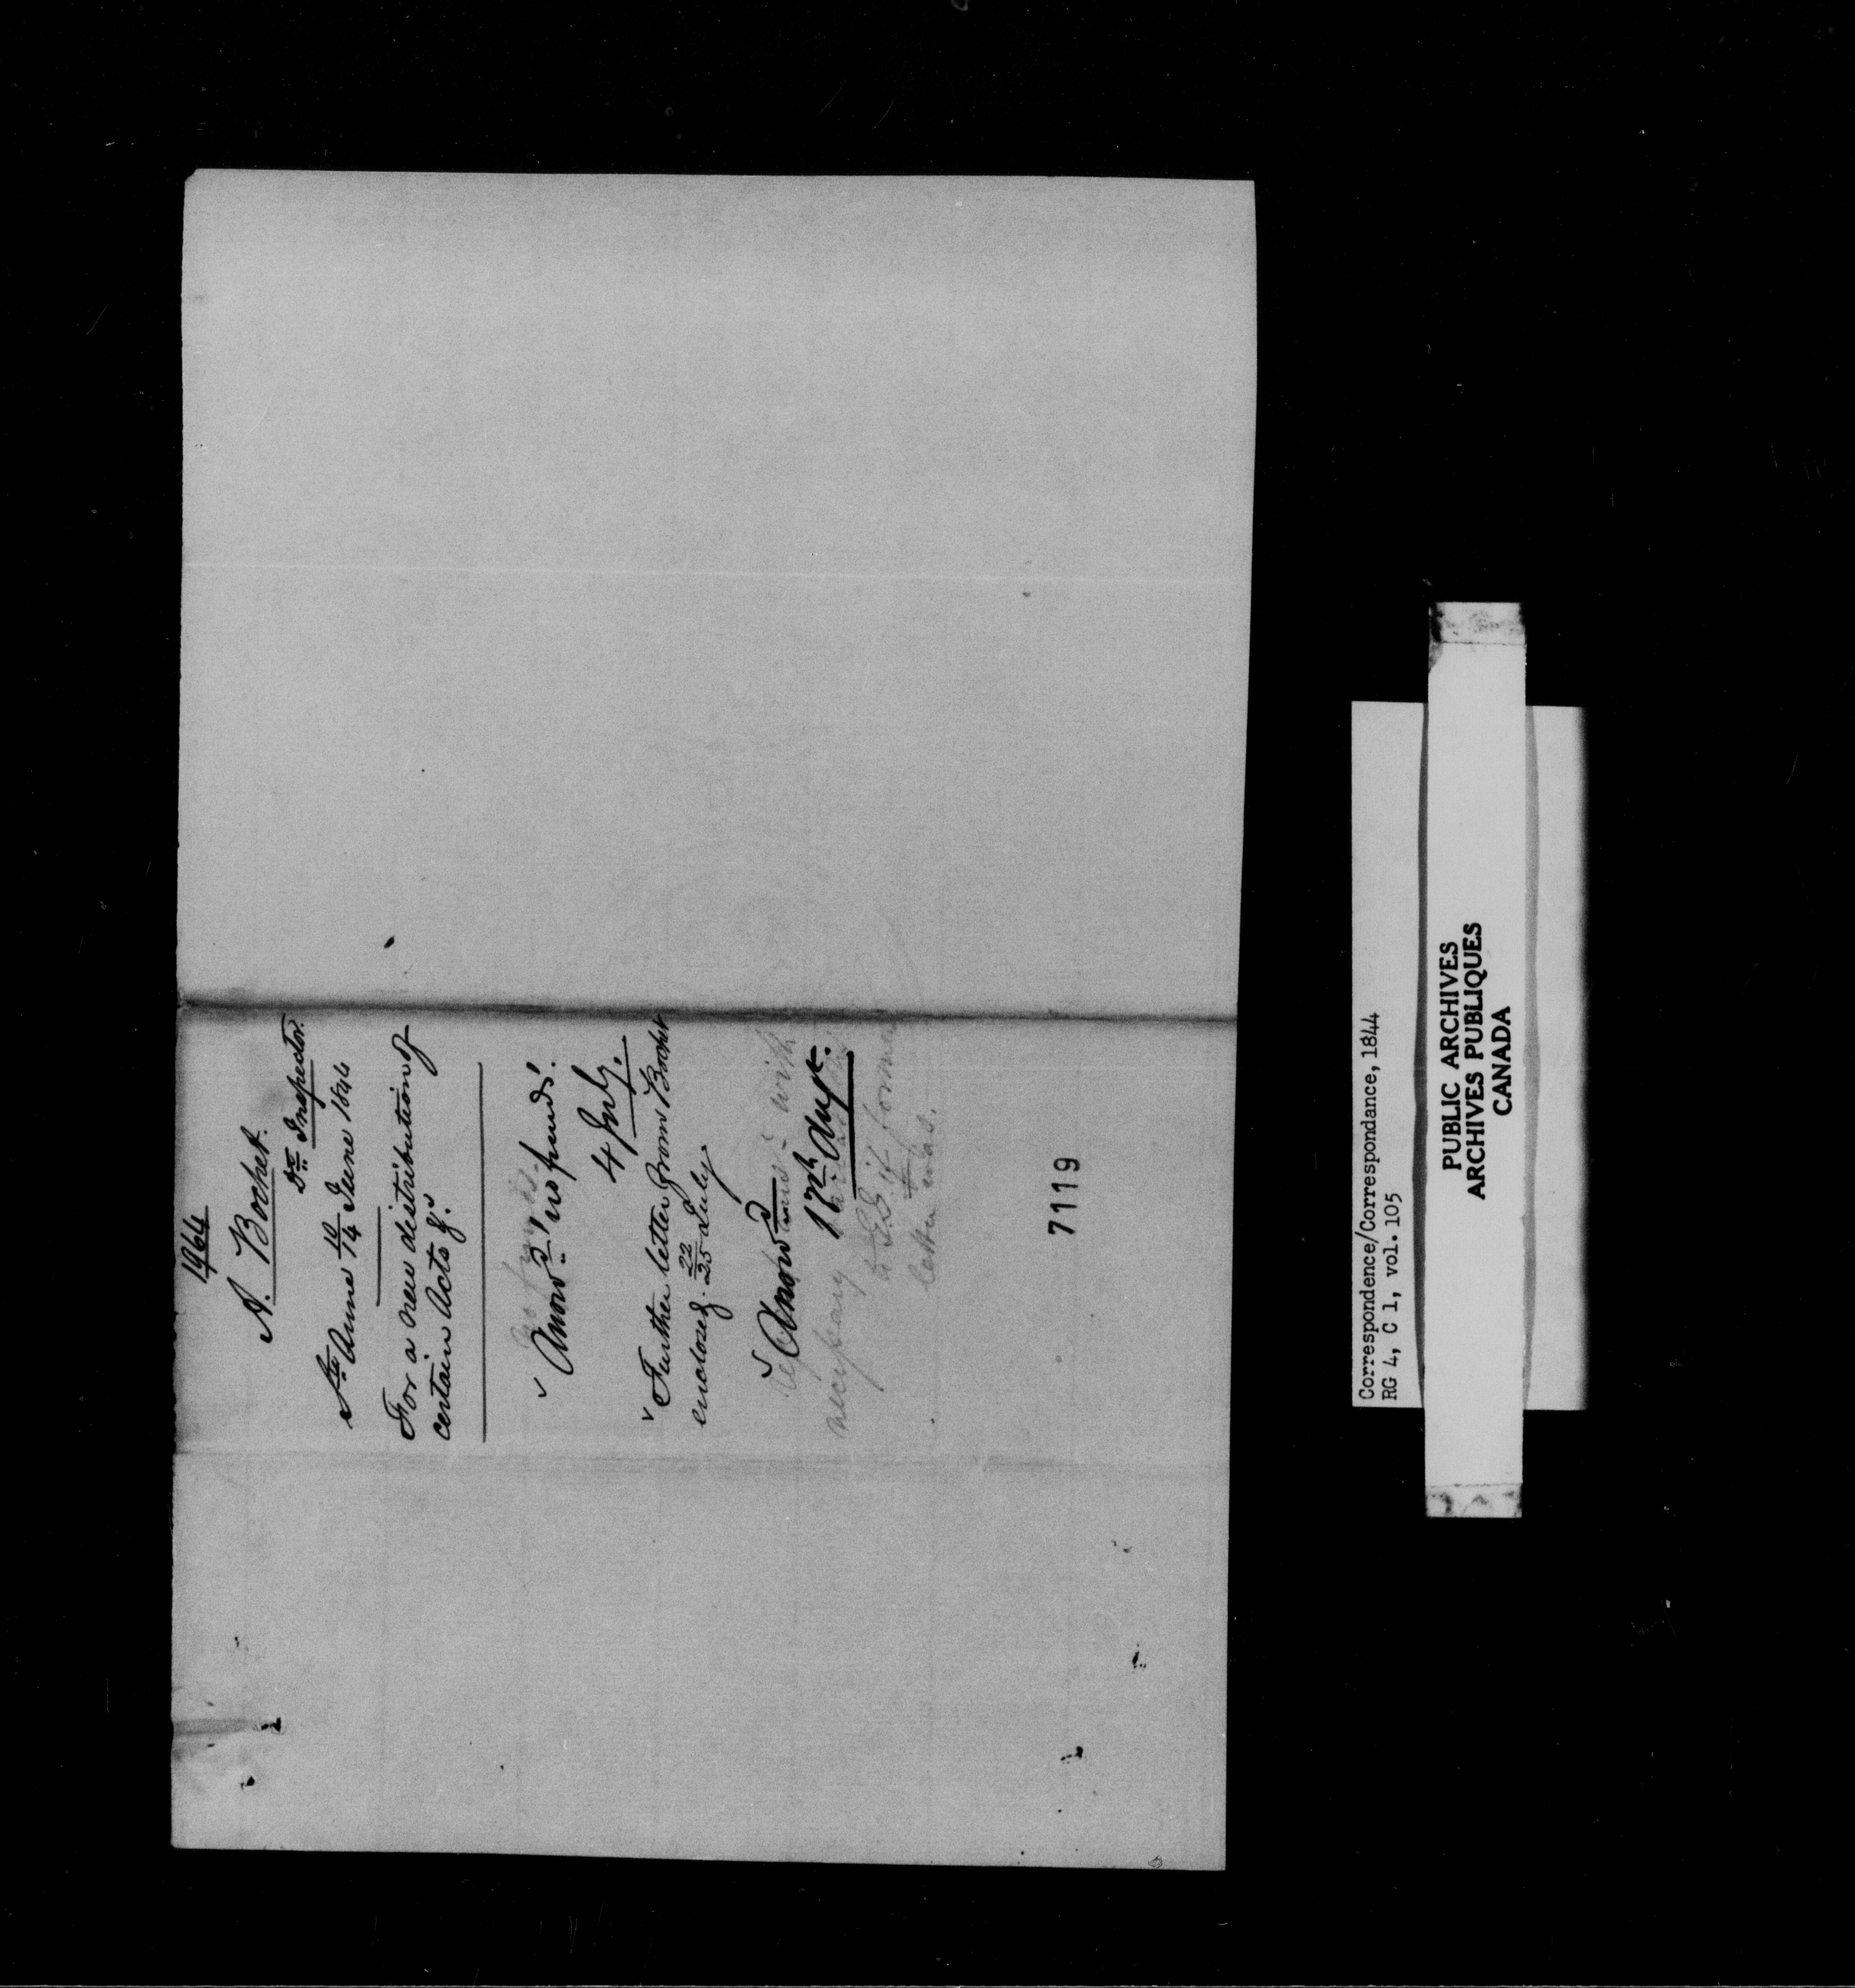 1964
A. Bochet.
Dy. Inspector.
Ste Anne 10/14 June 1844
For a new distribution of
certain Acts &c.
no funds.
Answd. 'no funds'.
4 July.
Further letter from Bochet
enclosed. 22/25 July
Answd
13th Augt.
with
necessary
to ES if former
letter was.
7119
Correspondence/Correspondance, 1844
RG 4, C 1, vol. 105
PUBLIC ARCHIVES
ARCHIVES PUBLIQUES
CANADA